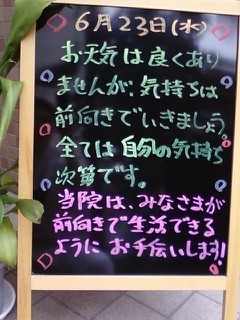 6月23日(水)
お天気は良くあり
ませんが、気持ちは
前向きでいきましょう。
全ては自分の気持ち
次第です。
当院は、みなさまが
前向きで生活できる
ように お手伝いします!